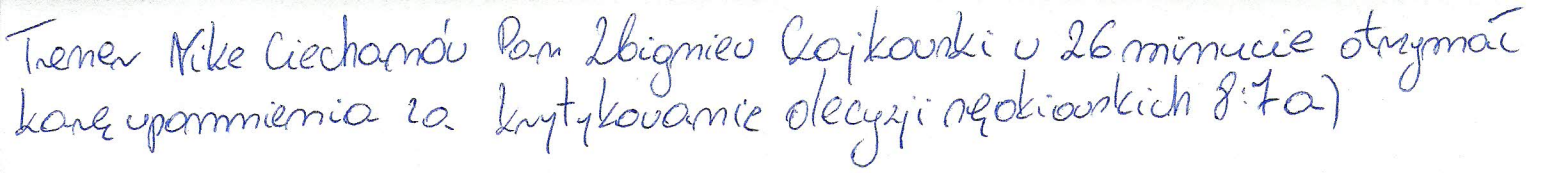 Trener Nike Ciechanów Pan Zbigniew Czajkowski w 26 minucie otrzymał
karę upomnienia za krytykowanie decyzji sędziowskich 8:7a)